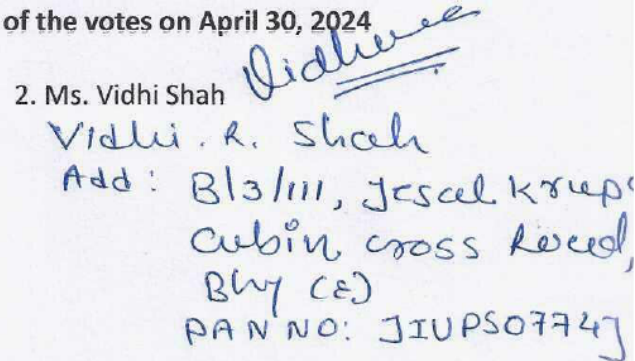 of the votes on April 30, 2024
2. Ms. Vidhi Shah
Vidhi. R. Shah
Add: B/3/111, Jesal Krup
Cabin cross Road,
Bhy (E)
PAN NO: JIUPS0774J